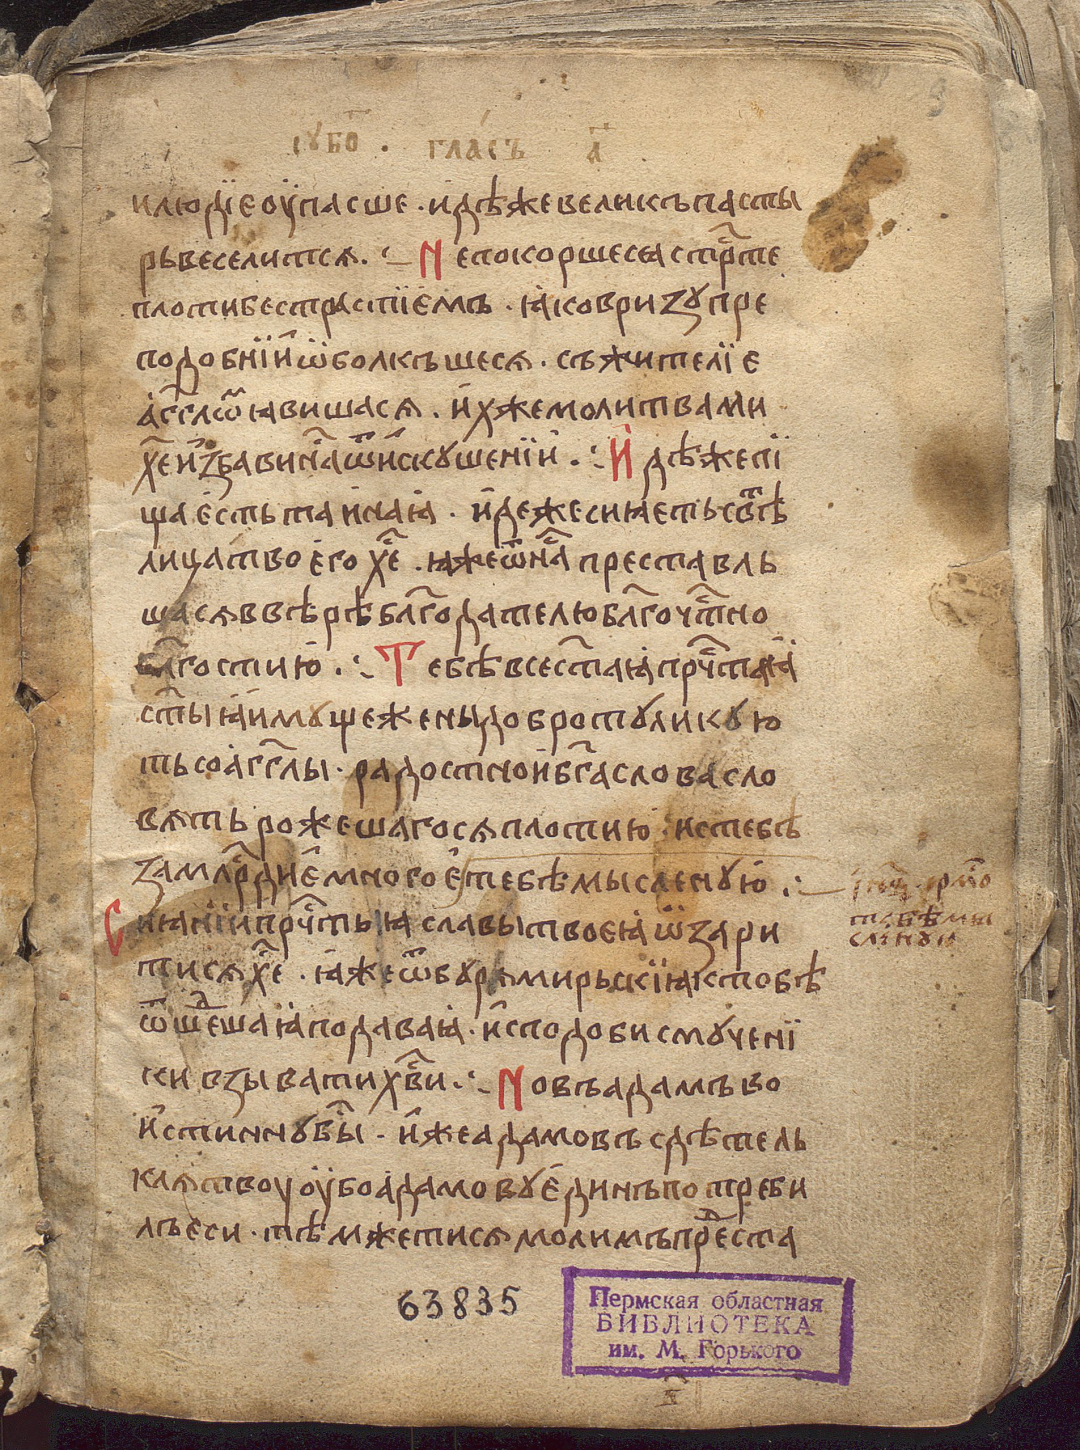 субо҃ . гла́съ а҃
и людїе оу҆пасше . и҆дѣже великъ пасты
рь веселитсѧ . Не покоршесѧ стр҇те
плоти бестрастїемъ . ꙗко в ризу пре
подобнїи ѡ҆болкъшесѧ . съжителїе
а҆гг҃лѡ҇ ꙗвишасѧ . и҆хже молитвами
х҃е и҆збави на҇ ѿ и҆скушенїи . И҆дѣже пї
ща є҆сть таинаꙗ . и҆деже сиꙗеть свѣ҇
лица твоего х҃е . ꙗже ѿ на҇ преставль
шасѧ в вѣрѣ блг҃одателю блг҃очт҇но
блг҃остию . Тебѣ все ст҃аꙗ прч҇таꙗ
ст҃ыꙗ имуще жены доброту ликую
ть со а҆гг҃лы . радостно и бг҃а слова сло
вѧть рожешагосѧ плотию . ис тебѣ
за млр҇дие много є҆ тебѣ мысленую
инъ . ирмо҇
тебѣ мы
сленую
Сиꙗнїи прч҇тыꙗ славы твоеꙗ ѡ҆зари
тисѧ х҃е . ꙗже ѿ бурѧ мирьскїꙗ к тобѣ
ѿше҇дшаꙗ подаваꙗ . и҆ сподоби с мученї
ки взывати хв҃и . Новъ адамъ во
и҆стинну бы҇ . и҆же адамовъ сдѣтель
клѧтвоу оу҆бо а҆дамову е҆динъ потреби
лъ еси . тѣмже ти сѧ молимъ пре҇дста
63835
Пермская областная
БИБЛИОТЕКА
им. М. Горького